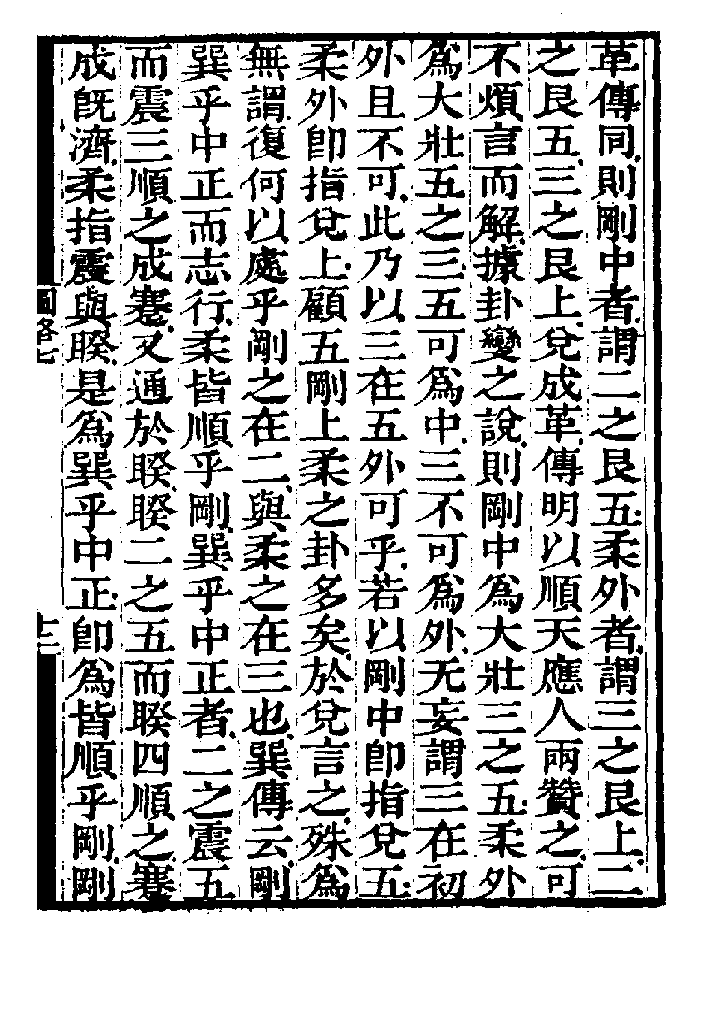 革傳同則剛中者謂二之艮五柔外者謂三之艮上二
之艮五三之艮上兌成革傳明以順天應人兩贊之可
不煩言而解據卦變之說則剛中為大壯三之五柔外
為大壯五之三五可為中三不可為外无妄謂三在初
外且不可此乃以三在五外可乎若以剛中卽指兌五
柔外卽指兌上顧五剛上柔之卦多矣於兌言之殊為
無謂復何以處乎剛之在二與柔之在三也巽傳云剛
巽乎中正而志行柔皆順乎剛巽乎中正者二之震五
而震三順之成蹇又通於睽睽二之五而睽四順之蹇
成旣濟柔指震與睽是為巽乎中正卽為皆順乎剛剛
圖略七
十二